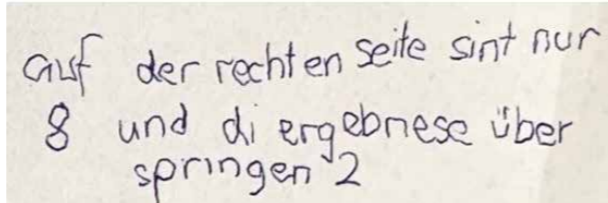 auf der rechten seite sint nur
8 und di ergebnese über
springen 2